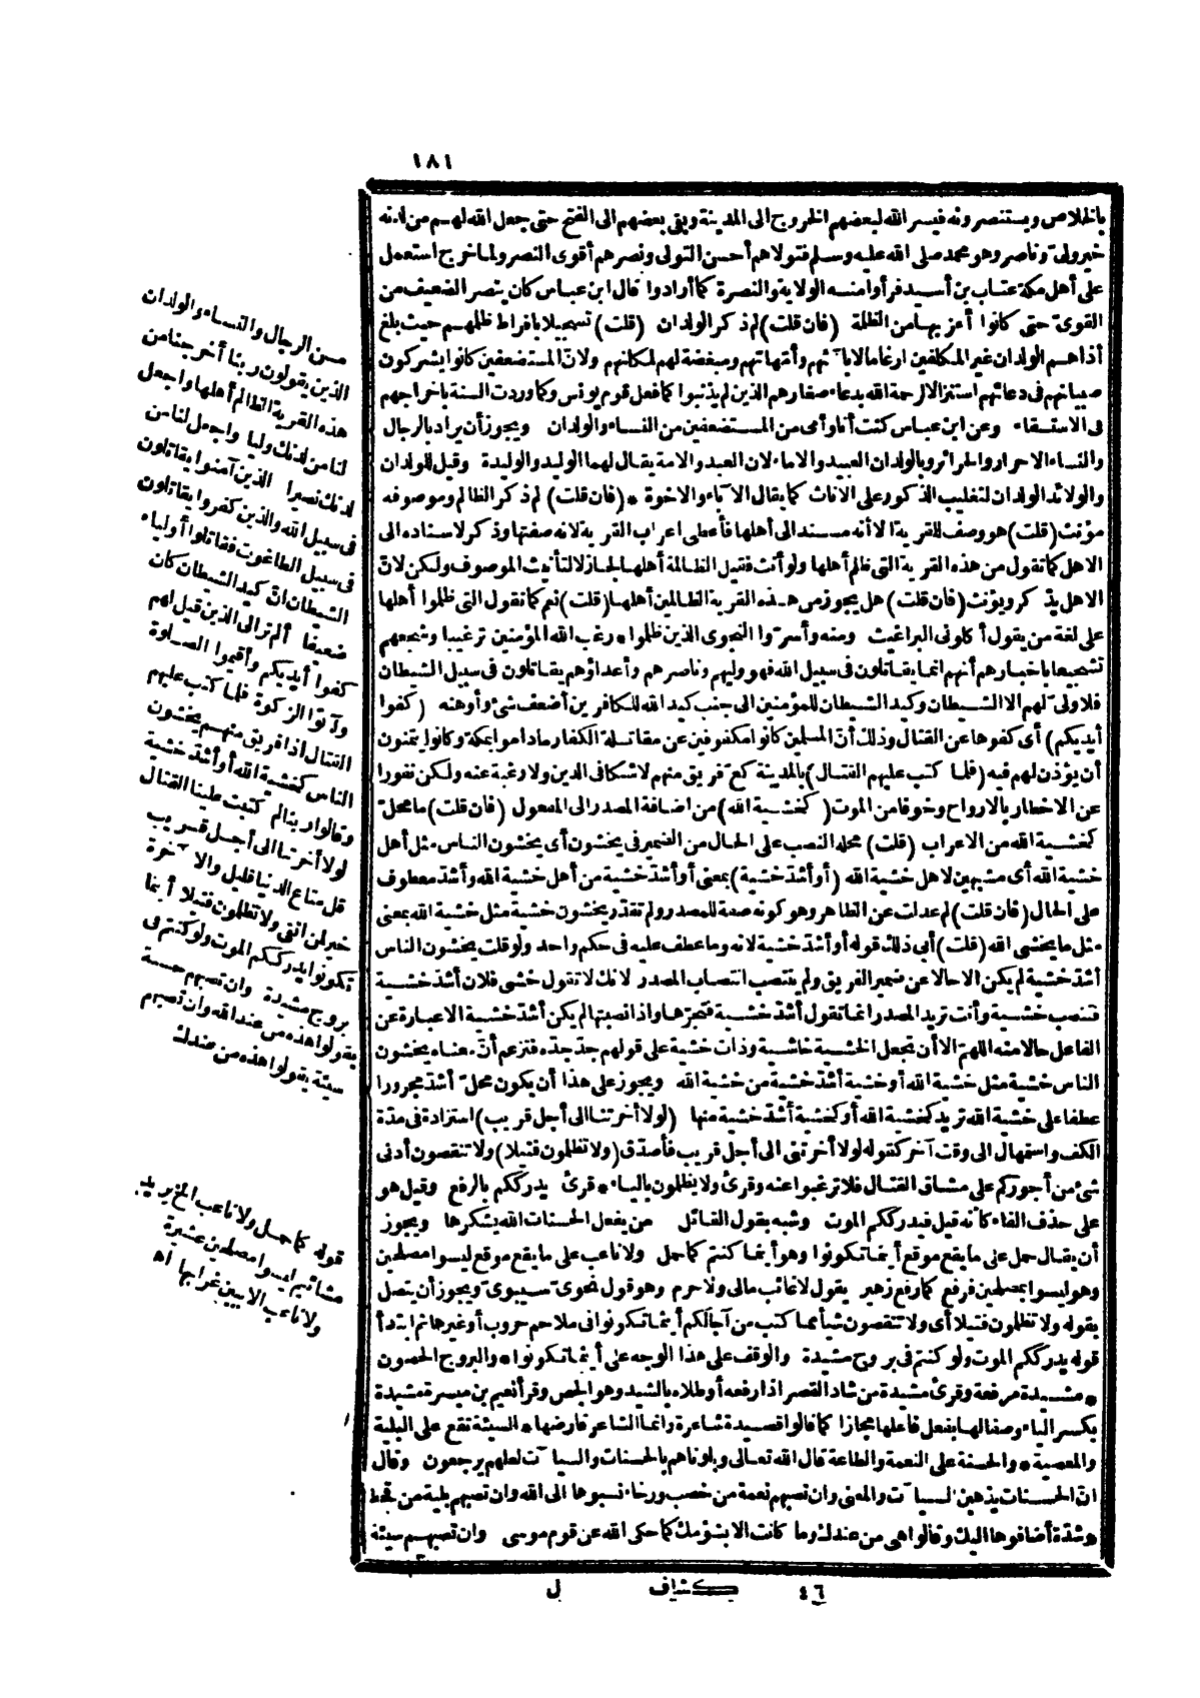 ١٨١
بالخلاص ويستنصرونه فيسر الله لبعضهم الخروج الى المدينة وبقي بعضهم الى الفتح حتى جعل الله لهم من لدنه
خير ولىّ وناصر وهو محمد صلى الله عليه وسلم فتولاهم أحسن التولى ونصرهم أقوى النصر ولما خرج استعمل
على أهل مكة عتاب بن أسيد فرأوا منه الولاية والنصرة كما أرادوا قال ابن عباس كان ينصر الضعيف من
القوىّ حتى كانوا أعز بها من الظلمة (فان قلت) لم ذكر الولدان (قلت) تسجيلا بافراط ظلمهم حيث بلغ
أذاهم الولدان غير المكلفين ارغاما لآبائهم وأمّهاتهم ومبغضة لهم لمكانهم ولانّ المستضعفين كانوا يشركون
صبيانهم فى دعائهم استنزالا لرحمة الله بدعاء صغارهم الذين لم يذنبوا كما فعل قوم يونس وكما وردت السنة باخراجهم
فى الاستسقاء وعن ابن عباس كنت أنا وأمى من المستضعفين من النساء والولدان ويجوز أن يراد بالرجال
والنساء الاحرار والحرائر وبالولدان العبيد والاماء لان العبد والامة يقال لهما الوليد والوليدة وقيل للولدان
والولائد الولدان لتغليب الذكور على الاناث كما يقال الآباء والاخوة * (فان قلت) لم ذكر الظالم وموصوفه
مؤنث (قلت) هو وصف للقرية الا أنه مسند الى أهلها فأعطى اعراب القرية لانه صفتها وذكر لاسناده الى
الاهل كما تقول من هذه القرية التى ظلم أهلها ولو أنث فقيل الظالمة أهلها لجاز لا لتأنيث الموصوف ولكن لانّ
الاهل يذكر ويؤنث (فان قلت) هل يجوز من هذه القرية الظالمين أهلها (قلت) نعم كما تقول التى ظلموا أهلها
على لغة من يقول أكلونى البراغيث ومنه وأسرّوا النجوى الذين ظلموا * رغب الله المؤمنين ترغيبا وشجعهم
تشجيعا باخبارهم أنهم انما يقاتلون فى سبيل الله فهو وليهم وناصرهم وأعداؤهم يقاتلون فى سبيل الشيطان
فلا ولىّ لهم الا الشيطان وكيد الشيطان للمؤمنين الى جنب كيد الله للكافرين أضعف شئ وأوهنه (كفوا
أيديكم) أى كفوها عن القتال وذلك أنّ المسلمين كانوا مكفوفين عن مقاتلة الكفار ماداموا بمكة وكانوا يتمنون
أن يؤذن لهم فيه (فلما كتب عليهم القتال) بالمدينة كعّ فريق منهم لا شكا فى الدين ولا رغبة عنه ولكن نفورا
عن الاخطار بالارواح وخوفا من الموت (كخشية الله) من اضافة المصدر الى المفعول (فان قلت) ما محلّ
كخشية الله من الاعراب (قلت) محله النصب على الحال من الضمير فى يخشون أى يخشون الناس مثل أهل
خشية الله أى مشبهين لاهل خشية الله (أو أشدّ خشية) بمعنى أو أشدّ خشية من أهل خشية الله وأشدّ معطوف
على الحال (فان قلت) لم عدلت عن الظاهر وهو كونه صفة للمصدر ولم تقدّر يخشون خشية مثل خشية الله بمعنى
مثل ما يخشى الله (قلت) أبى ذلك قوله أو أشدّ خشية لانه وما عطف عليه فى حكم واحد ولو قلت يخشون الناس
أشدّ خشية لم يكن الا حالا عن ضمير الفريق ولم ينتصب انتصاب المصدر لانك لا تقول خشى فلان أشدّ خشية
فتنصب خشية وأنت تريد المصدر انما تقول أشدّ خشية فتجرّها واذا نصبتها لم يكن أشدّ خشية الا عبارة عن
الفاعل حالا منه اللهمّ الا أن تجعل الخشية خاشية وذات خشية على قولهم جدّ جدّه فتزعم أنّ معناه يخشون
الناس خشية مثل خشية الله أو خشية أشدّ خشية من خشية الله ويجوز على هذا أن يكون محلّ أشدّ مجرورا
عطفا على خشية الله تريد كخشية الله أو كخشية أشدّ خشية منها (لولا أخرتنا الى أجل قريب) استزادة فى مدّة
الكف واستمهال الى وقت آخر كقوله لولا أخرتنى الى أجل قريب فأصدّق (ولا تظلمون فتيلا) ولا تنقصون أدنى
شئ من أجوركم على مشاق القتال فلا ترغبوا عنه وقرئ ولا يظلمون بالياء * قرئ يدرككم بالرفع وقيل هو
على حذف الفاء كأنه قيل فيدرككم الموت وشبه بقول القائل من يفعل الحسنات الله يشكرها ويجوز
أن يقال حمل على ما يقع موقع أينما تكونوا وهو أينما كنتم كما حمل ولا ناعب على ما يقع موقع ليسوا مصلحين
وهو ليسوا بمصلحين فرفع كما رفع زهير يقول لا غائب مالى ولا حرم وهو قول نحوىّ سيبوىّ ويجوز أن يتصل
بقوله ولا تظلمون فتيلا أى ولا تنقصون شيأ مما كتب من آجالكم أينما تكونوا فى ملاحم حروب أو غيرها ثم ابتدأ
قوله يدرككم الموت ولو كنتم فى بروج مشيدة والوقف على هذا الوجه على أينما تكونوا * والبروج الحصون
* مشيدة مرفعة وقرئ مشيدة من شاد القصر اذا رفعه أو طلاه بالشيد وهو الجص وقرأ نعيم بن ميسرة مشيدة
بكسر الياء وصفا لها بفعل فاعلها مجازا كما قالوا قصيدة شاعرة وانما الشاعر قارضها * السيئة تقع على البلية
والمعصية * والحسنة على النعمة والطاعة قال الله تعالى وبلوناهم بالحسنات والسيآت لعلهم يرجعون وقال
انّ الحسنات يذهبن السيآت والمعنى وان تصبهم نعمة من خصب ورخاء نسبوها الى الله وان تصبهم بلية من قحط
وشدّة أضافوها اليك وقالوا هى من عندك وما كانت الا بشؤمك كما حكى الله عن قوم موسى وان تصبهم سيئة
من الرجال والنساء والولدان
الذين يقولون ربنا أخرجنا من
هذه القرية الظالم أهلها واجعل
لنا من لدنك وليا واجعل لنا من
لدنك نصيرا الذين آمنوا يقاتلون
فى سبيل الله والذين كفروا يقاتلون
فى سبيل الطاغوت فقاتلوا أولياء
الشيطان انّ كيد الشيطان كان
ضعيفا ألم تر الى الذين قيل لهم
كفوا أيديكم وأقيموا الصلوة
وآتوا الزكوة فلما كتب عليهم
القتال اذا فريق منهم يخشون
الناس كخشية الله أو أشدّ خشية
وقالوا ربنا لم كتبت علينا القتال
لولا أخرتنا الى أجل قريب
قل متاع الدنيا قليل والآخرة
خير لمن اتقى ولا تظلمون فتيلا أينما
تكونوا يدرككم الموت ولو كنتم فى
بروج مشيدة وان تصبهم حسنة
يقولوا هذه من عند الله وان تصبهم
سيئة يقولوا هذه من عندك
قوله كما حمل ولا ناعب الخ يريد
مشائيم ليسوا مصلحين عشيرة
ولا ناعب الا ببين غرابها اه
٤٦ كشاف ل